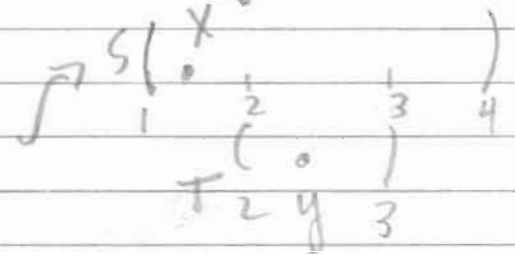 S( X )
1 2 3 4
( )
T 2 y 3